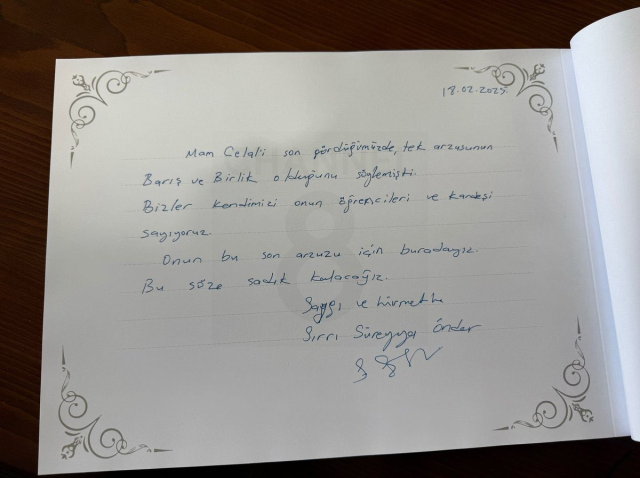 18.02.2025.
Mam Celal'i son gördüğümüzde, tek arzusunun
Barış ve Birlik olduğunu söylemişti.
Bizler kendimizi onun öğrencileri ve kardeşi
sayıyoruz.
Onun bu son arzuzu için buradayız.
Bu söze sadık kalacağız.
Saygı ve hürmetle
Sırrı Süreyya Önder